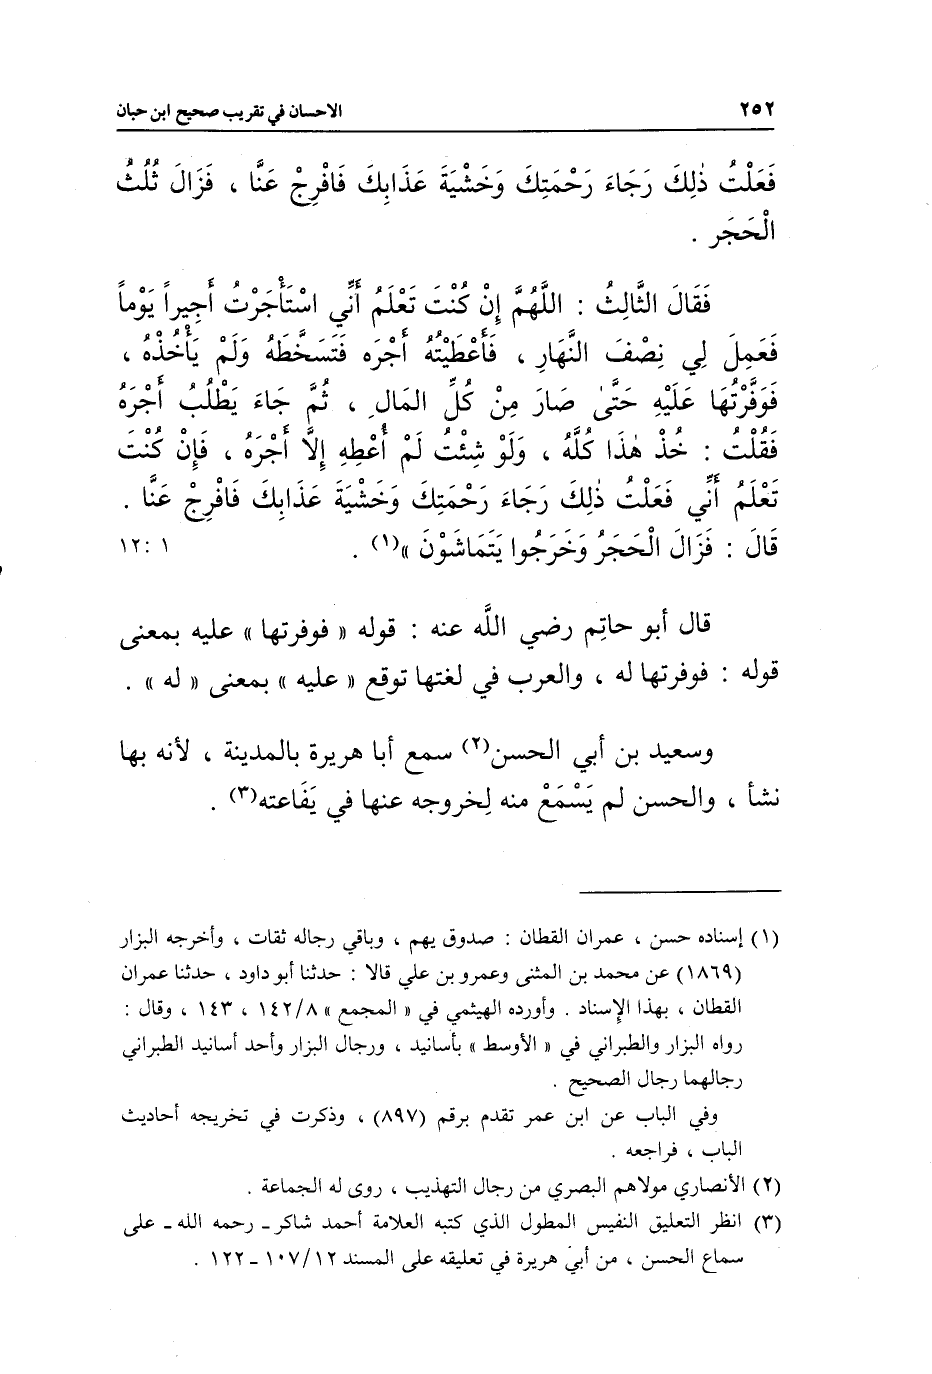 ٢٥٢ الاحسان في تقريب صحيح ابن حبان
فَعَلْتُ ذٰلِكَ رَجَاءَ رَحْمَتِكَ وَخَشْيَةَ عَذَابِكَ فَافْرِجْ عَنَّا ، فَزَالَ ثُلُثُ
الْحَجَرِ .
فَقَالَ الثَّالِثُ : اللَّهُمَّ إِنْ كُنْتَ تَعْلَمُ أَنِّي اسْتَأْجَرْتُ أَجِيراً يَوْماً
فَعَمِلَ لِي نِصْفَ النَّهَارِ ، فَأَعْطَيْتُهُ أَجْرَه فَتَسَخَّطَهُ وَلَمْ يَأْخُذْهُ ،
فَوَفَّرْتُهَا عَلَيْهِ حَتَّىٰ صَارَ مِنْ كُلِّ المَالِ ، ثُمَّ جَاءَ يَطْلُبُ أَجْرَهُ
فَقُلْتُ : خُذْ هٰذَا كُلَّهُ ، وَلَوْ شِئْتُ لَمْ أُعْطِهِ إِلَّا أَجْرَهُ ، فَإِنْ كُنْتَ
تَعْلَمُ أَنِّي فَعَلْتُ ذٰلِكَ رَجَاءَ رَحْمَتِكَ وَخَشْيَةَ عَذَابِكَ فَافْرِجْ عَنَّا .
قَالَ : فَزَالَ الْحَجَرُ وَخَرَجُوا يَتَمَاشَوْنَ »(١) . ١ :١٢
قال أبو حاتِم رضي اللَّه عنه : قوله « فوفرتها » عليه بمعنى
قوله : فوفرتها له ، والعرب في لغتها توقع « عليه » بمعنى « له » .
وسعيد بن أبي الحسن(٢) سمع أبا هريرة بالمدينة ، لأنه بها
نشأ ، والحسن لم يَسْمَعْ منه لِخروجه عنها في يَفَاعته(٣) .
(١) إسناده حسن ، عمران القطان : صدوق يهم ، وباقي رجاله ثقات ، وأخرجه البزار
(١٨٦٩) عن محمد بن المثنى وعمرو بن علي قالا : حدثنا أبو داود ، حدثنا عمران
القطان ، بهذا الإسناد . وأورده الهيثمي في « المجمع » ١٤٢/٨ ، ١٤٣ ، وقال :
رواه البزار والطبراني في « الأوسط » بأسانيد ، ورجال البزار وأحد أسانيد الطبراني
رجالهما رجال الصحيح .
وفي الباب عن ابن عمر تقدم برقم (٨٩٧) ، وذكرت في تخريجه أحاديث
الباب ، فراجعه .
(٢) الأنصاري مولاهم البصري من رجال التهذيب ، روى له الجماعة .
(٣) انظر التعليق النفيس المطول الذي كتبه العلامة أحمد شاكر ـ رحمه الله ـ على
سماع الحسن ، من أبي هريرة في تعليقه على المسند ١٠٧/١٢ ـ ١٢٢ .